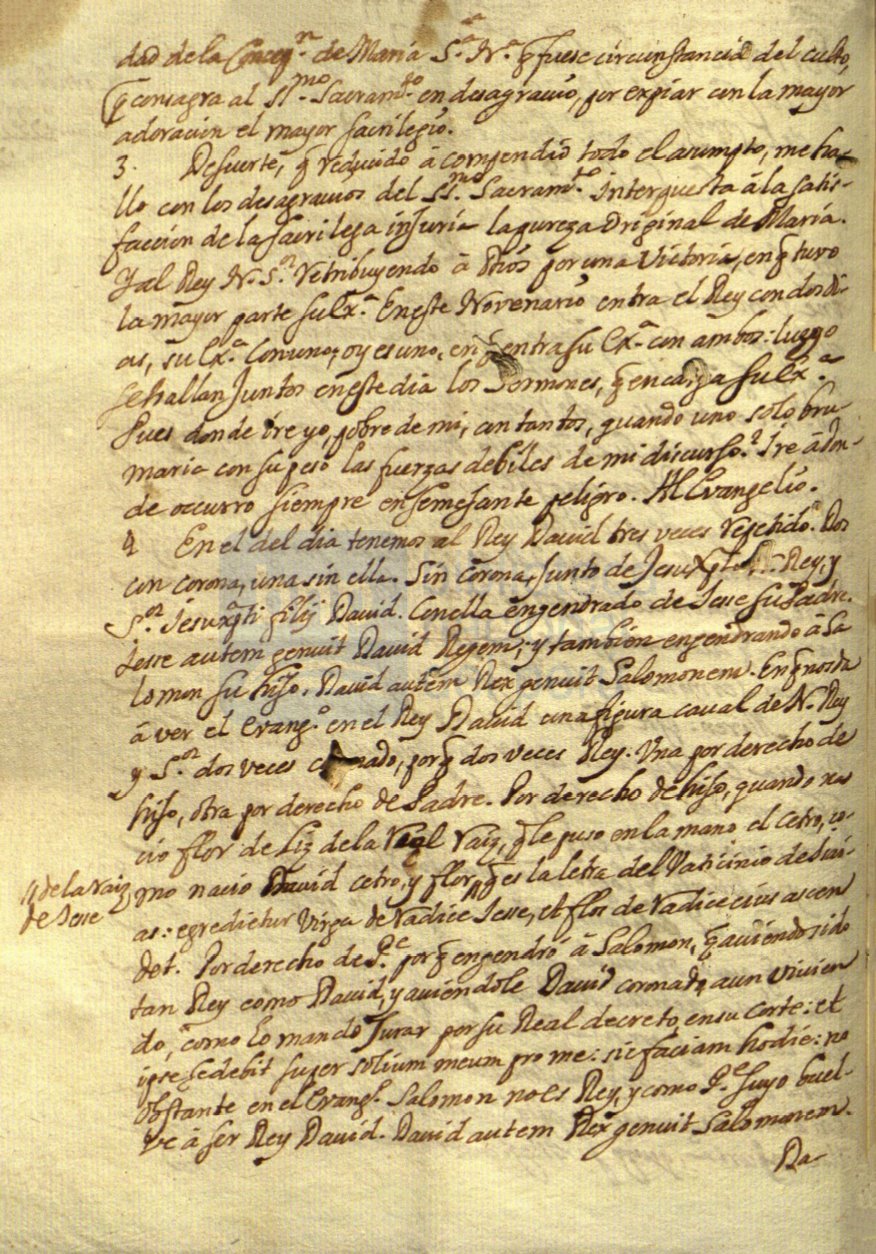 dad de la Concepn. de Maria Sa. Na. q̃ fuese circunstancia del culto,
q̃ consagra al Ssmo. Sacramto. en desagravio, por expiar con la mayor
adoracion el mayor sacrilegio.
3. Desuerte, q̃ reducido â compendio todo el asumpto, me ha-
llo con los desagravios del Ssmo. Sacramto. interpuesta â la satis-
faccion de la sacrilega injuria la pureza Original de Maria.
Y al Rey N. Sor. retribuyendo â Dios por una Victoria, en q̃ tuvo
la mayor parte su Exa. En este Novenario entra el Rey con dos di-
as, su Exa. con uno, oy es uno, en q̃ entra su Exa. con ambos: luego
se hallan juntos en este dia los Sermones, q̃ encarga su Exa.
Pues donde ire yo, pobre de mi, con tantos, quando uno solo bru-
maria con su peso las fuerzas debiles de mi discurso? Ire âdon-
de occurro siempre en semejante peligro. Al Evangelio.
4 En el del dia tenemos al Rey David tres veces repetido. Dos
con corona, una sin ella. Sin corona, junto de Jesuxpto Rey, y
Sor. Jesuxpti filij David. Con ella engendrado de Jesse su Padre.
Jesse autem genuit David Regem; y tambien engendrando â Sa
lomon su hijo. David autem Rex genuit Salomonem. En q̃ nos da
â ver el Evango. en el Rey David una figura caval de N. Rey
y Sor. dos veces coronado, por q̃ dos veces Rey. Una por derecho de
hijo, otra por derecho de Padre. Por derecho de hijo, quando na-
cio flor de Liz de la Real Raiz, q̃ le puso en la mano el cetro, co-
mo nacio David cetro, y flor, " q̃ es la letra del Vaticinio de Isai-
" de la raiz
de Jesse
as: egredietur Virga de radice Jesse, et flos de radice eius ascen
det. Por derecho de Pe. por q̃ engendró â Salomon, q̃ aviendo sido
tan Rey como David, y aviendole David coronado aun vivien
do, como lo mandó jurar por su Real decreto en su Corte: et
ipse sedebit super solium meum pro me: sic faciam hodie: no
obstante en el Evangº. Salomon no es Rey, y como Pe. suyo buel-
ve â ser Rey David. David autem Rex genuit Salomonem.
Da-